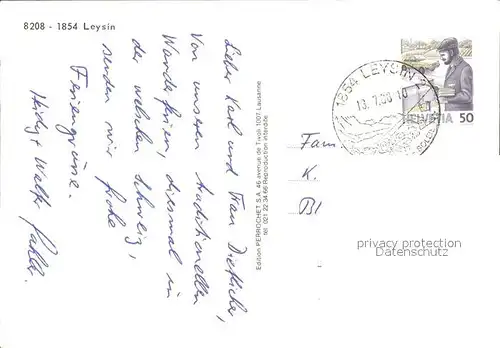 8208 - 1854 Leysin
Lieber Karl und Frau
Von unseren traditionellen
Wanderferien, diesmal in
der welschen Schweiz,
senden wir frohe
Feriengrüsse.
Heidy + Walter
Edition PERROCHET S.A. 46 avenue de Tivoli 1007 Lausanne
tél. 021 22 34 66 Reproduction interdite
1854 LEYSIN
HELVETIA 50
Fam.
K.
Bl
privacy protection
Datenschutz